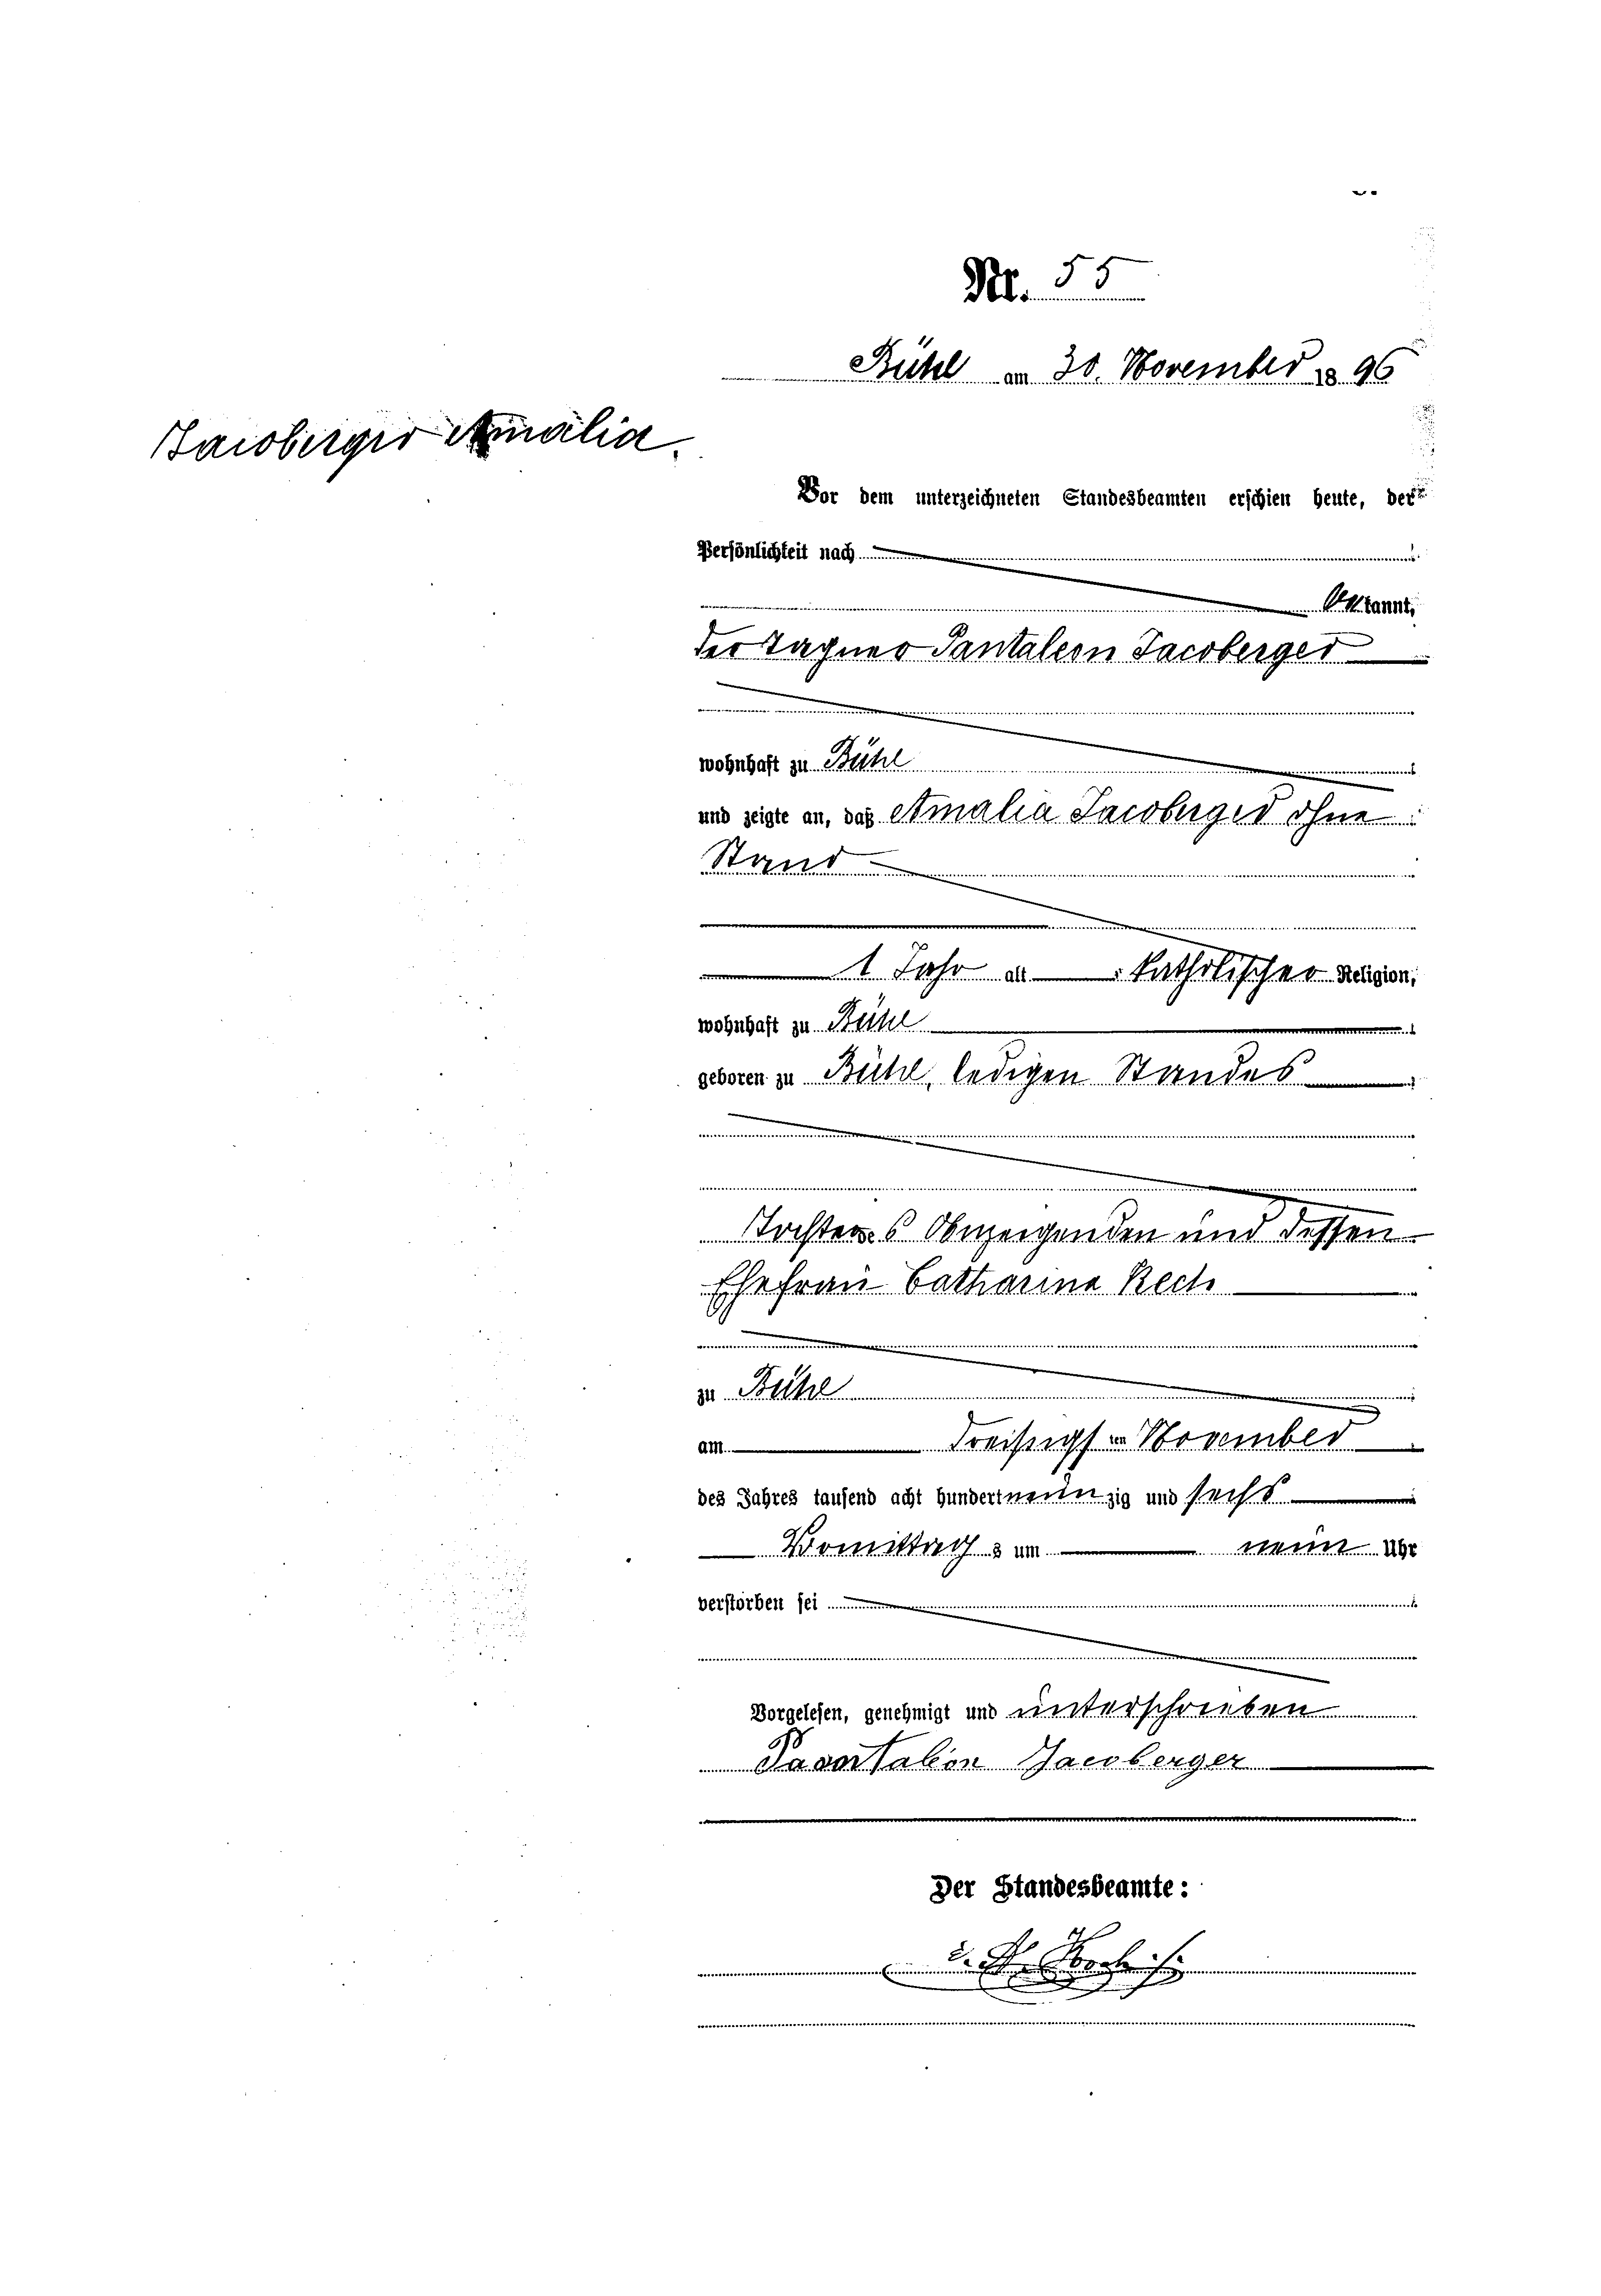 Nr. 55
Bühl am 30. November 1896
Jacoberger Amalia.
Vor dem unterzeichneten Standesbeamten erschien heute, der
Persönlichkeit nach
bekannt,
der Tagner Pantaleon Jacoberger
wohnhaft zu Bühl
und zeigte an, daß Amalia Jacoberger ohne
Stand
1 Jahr alt katholischer Religion,
wohnhaft zu Bühl
geboren zu Bühl, ledigen Standes
Tochter des Anzeigenden und dessen
Ehefrau Catharina Rech
zu Bühl
am dreißigsten November
des Jahres tausend acht hundert neunzig und sechs
Vormittags um neun Uhr
verstorben sei
Vorgelesen, genehmigt und unterschrieben
Pantaleon Jacoberger
Der Standesbeamte: